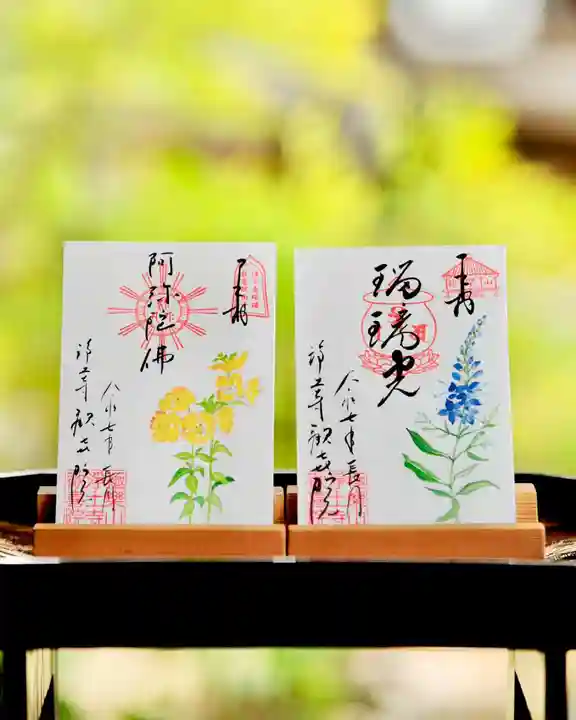 奉拝
阿弥陀佛
令和七年長月
浄土寺 歓喜院
奉拝
瑠璃光
令和七年長月
浄土寺 歓喜院